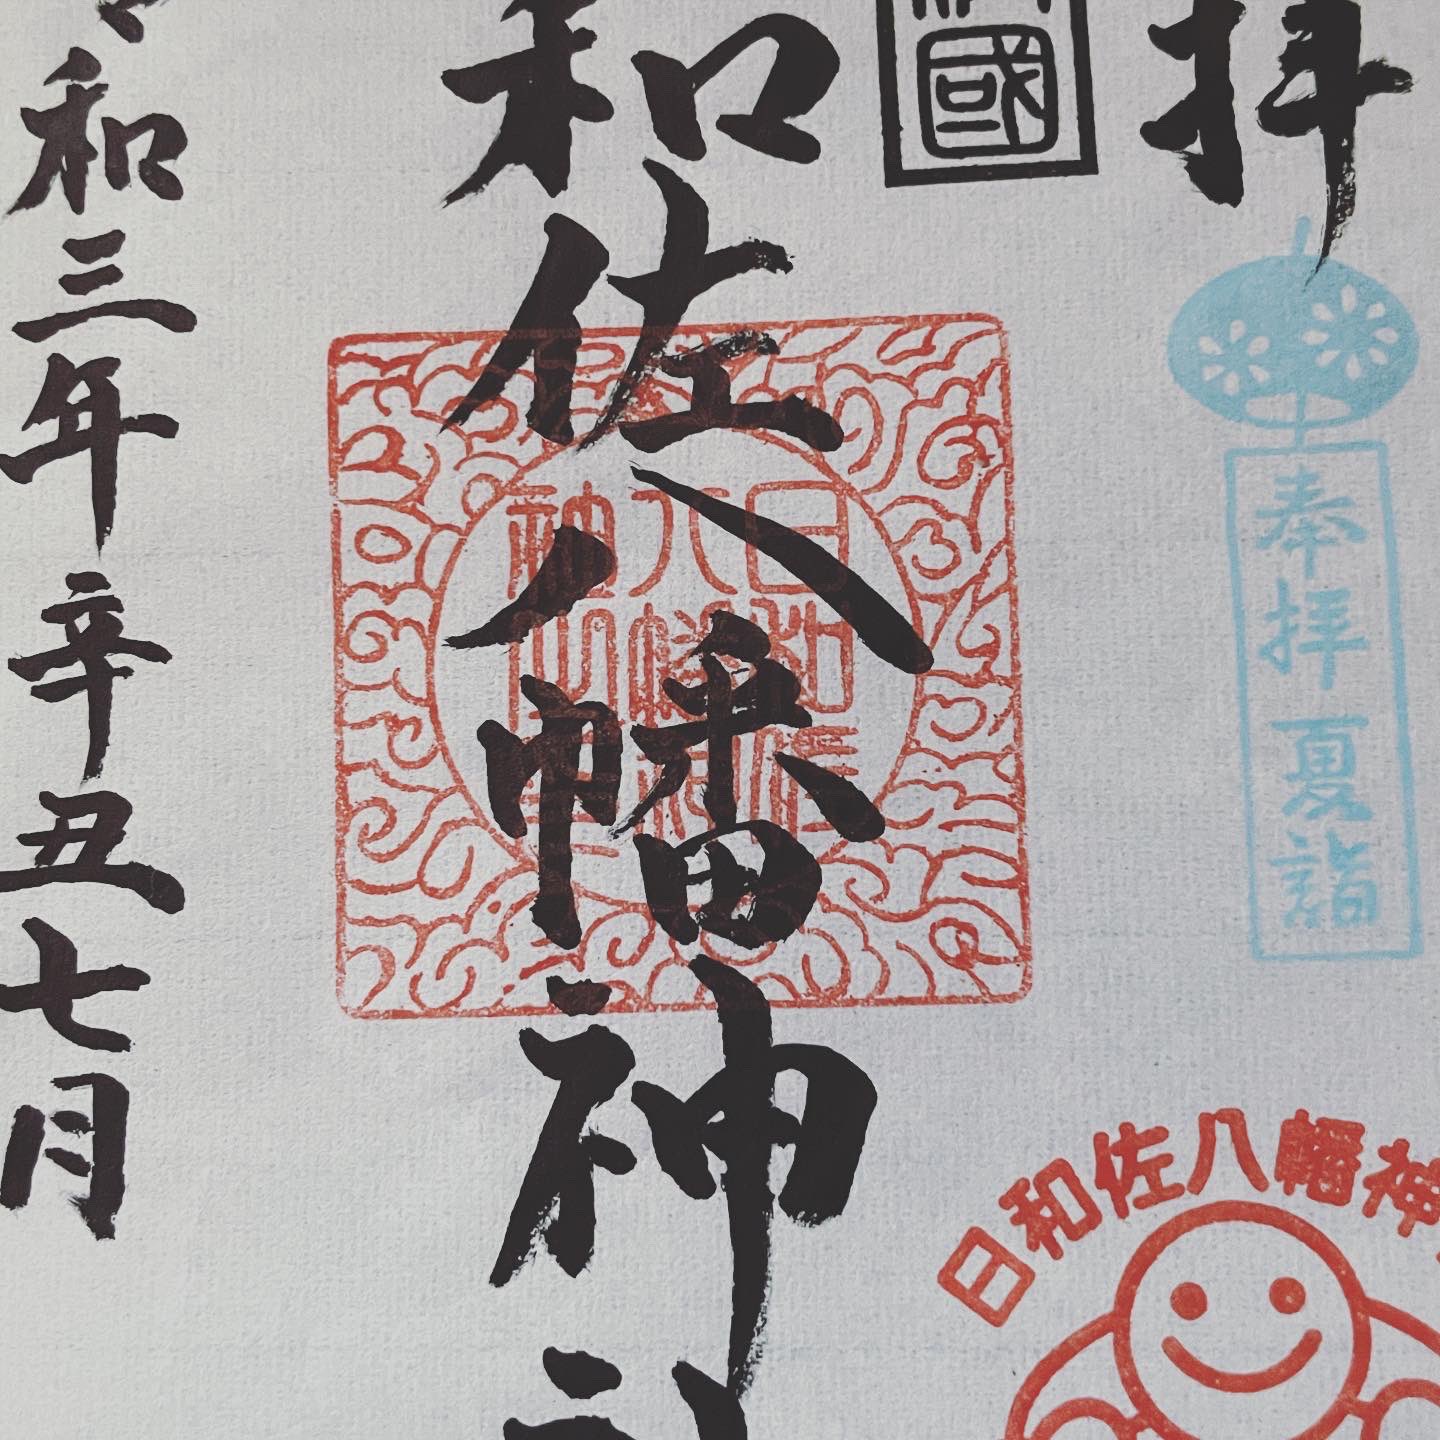 拝
奉拝夏詣
國
和佐八幡神社
日八神
和幡
佐神
令和三年辛丑七月
日和佐八幡神